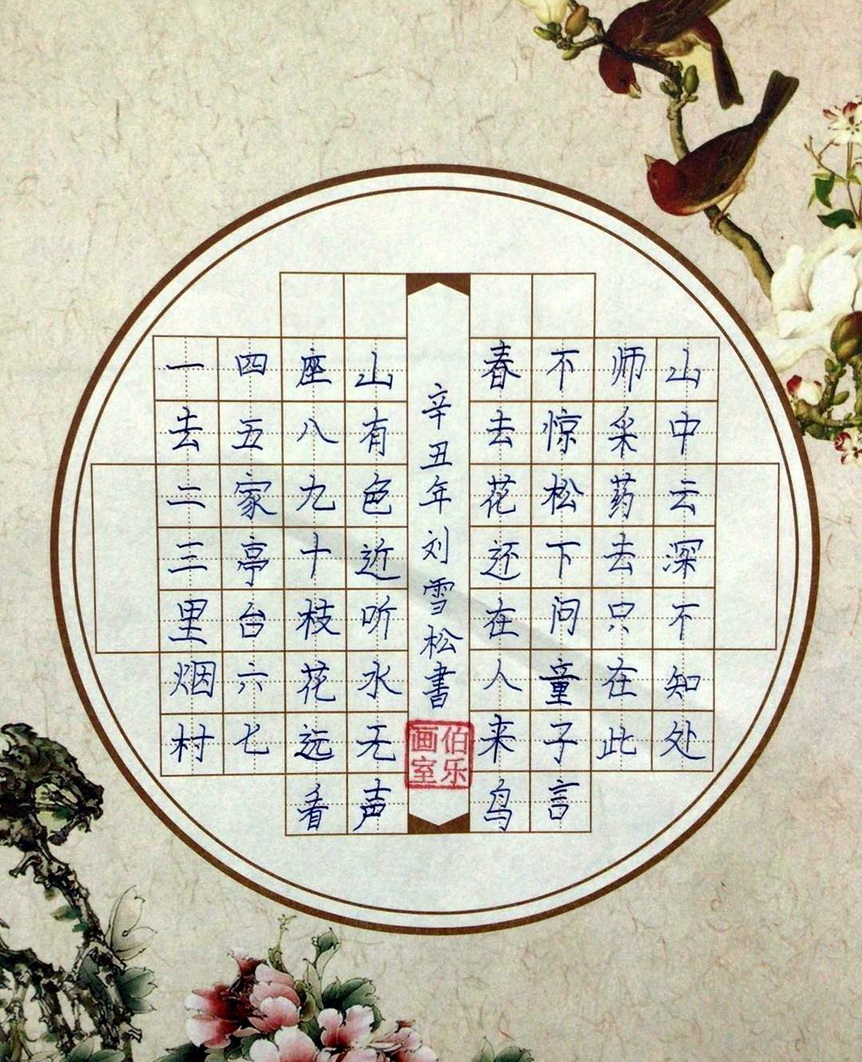 一去二三里烟村
四五家亭台六七
座八九十枝花远看
山有色近听水无声
春去花还在人来鸟
不惊松下问童子言
师采药去只在此
山中云深不知处
辛丑年刘雪松書
伯乐画室